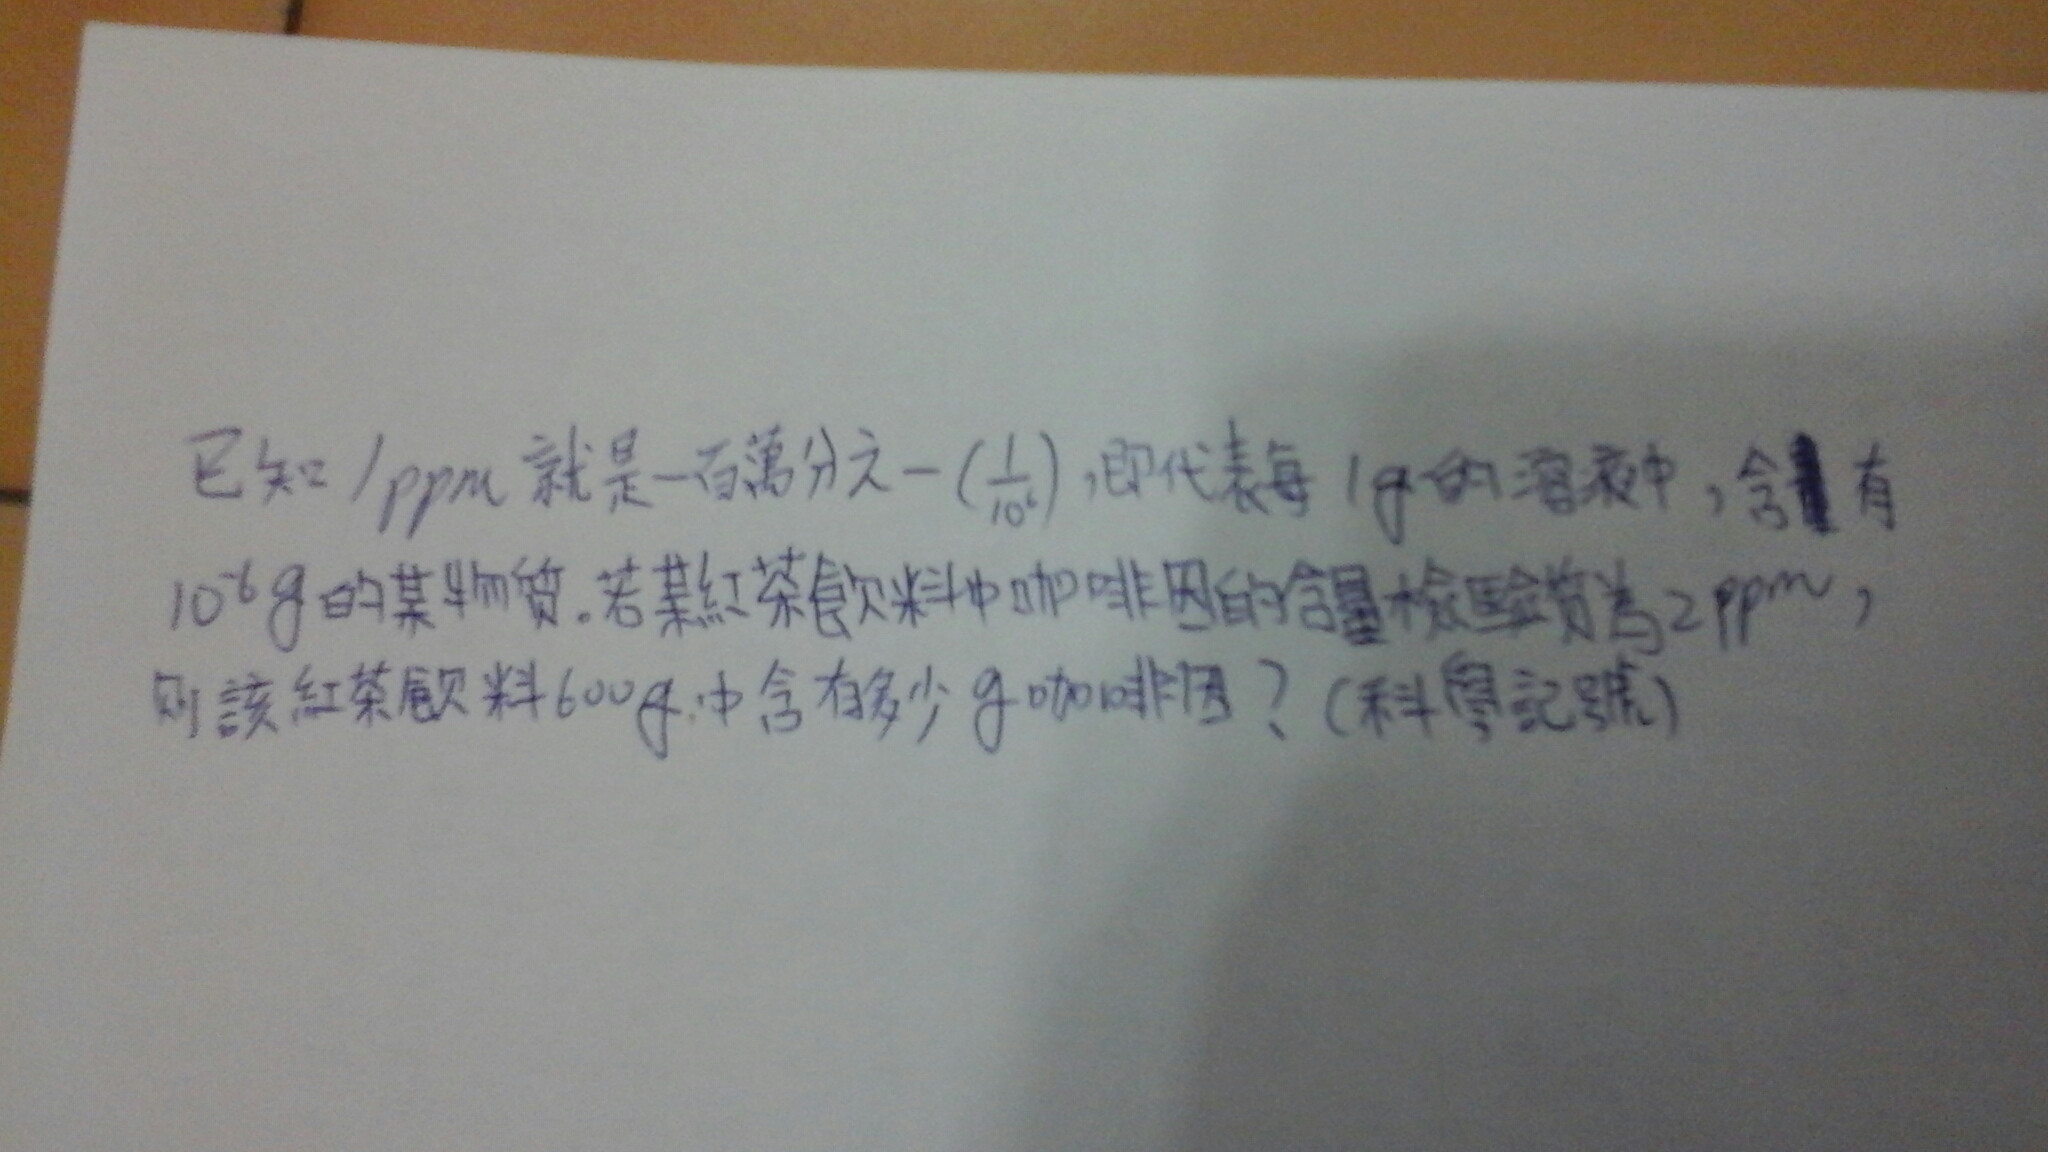 已知1ppm就是一百萬分之一(1/10⁶),即代表每1g的溶液中,含有
10⁻⁶g的某物質.若某紅茶飲料中咖啡因的含量檢驗為2ppm,
則該紅茶飲料600g中含有多少g咖啡因?(科學記號)